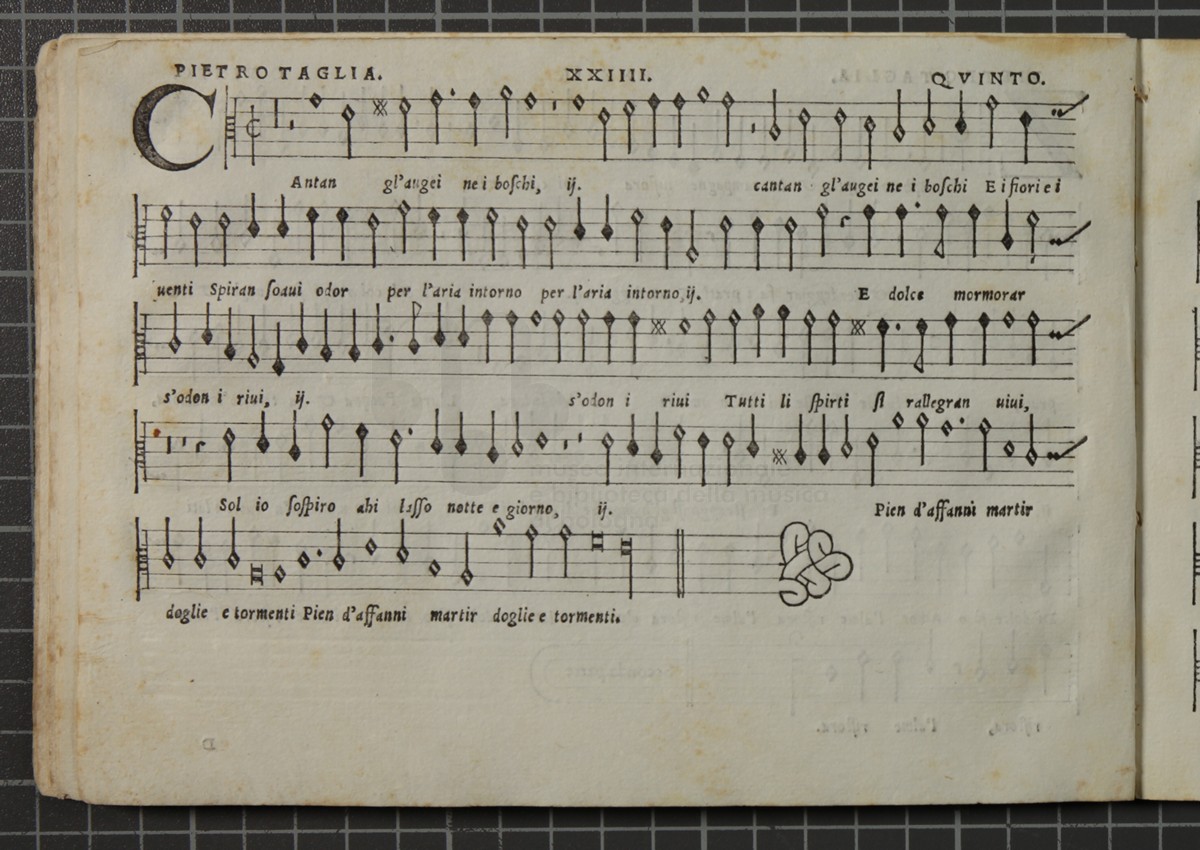 PIETRO TAGLIA. XXIIII. QVINTO.
CAntan gl'augei ne i boſchi, ij. cantan gl'augei ne i boſchi E i fiori e i
uenti Spiran ſoaui odor per l'aria intorno per l'aria intorno, ij. E dolce mormorar
s'odon i riui, ij. s'odon i riui Tutti li ſpirti ſi rallegran uiui,
Sol io ſoſpiro ahi laſſo notte e giorno, ij. Pien d'affanni martir
doglie e tormenti Pien d'affanni martir doglie e tormenti.